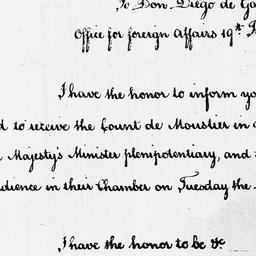 To Don Diego de Ga
Office for foreign Affairs 19th
I have the honor to inform yo
d to receive the Count de Moustier in
Majesty's Minister plenipotentiary, and
dience in their Chamber on Tuesday the
I have the honor to be &c